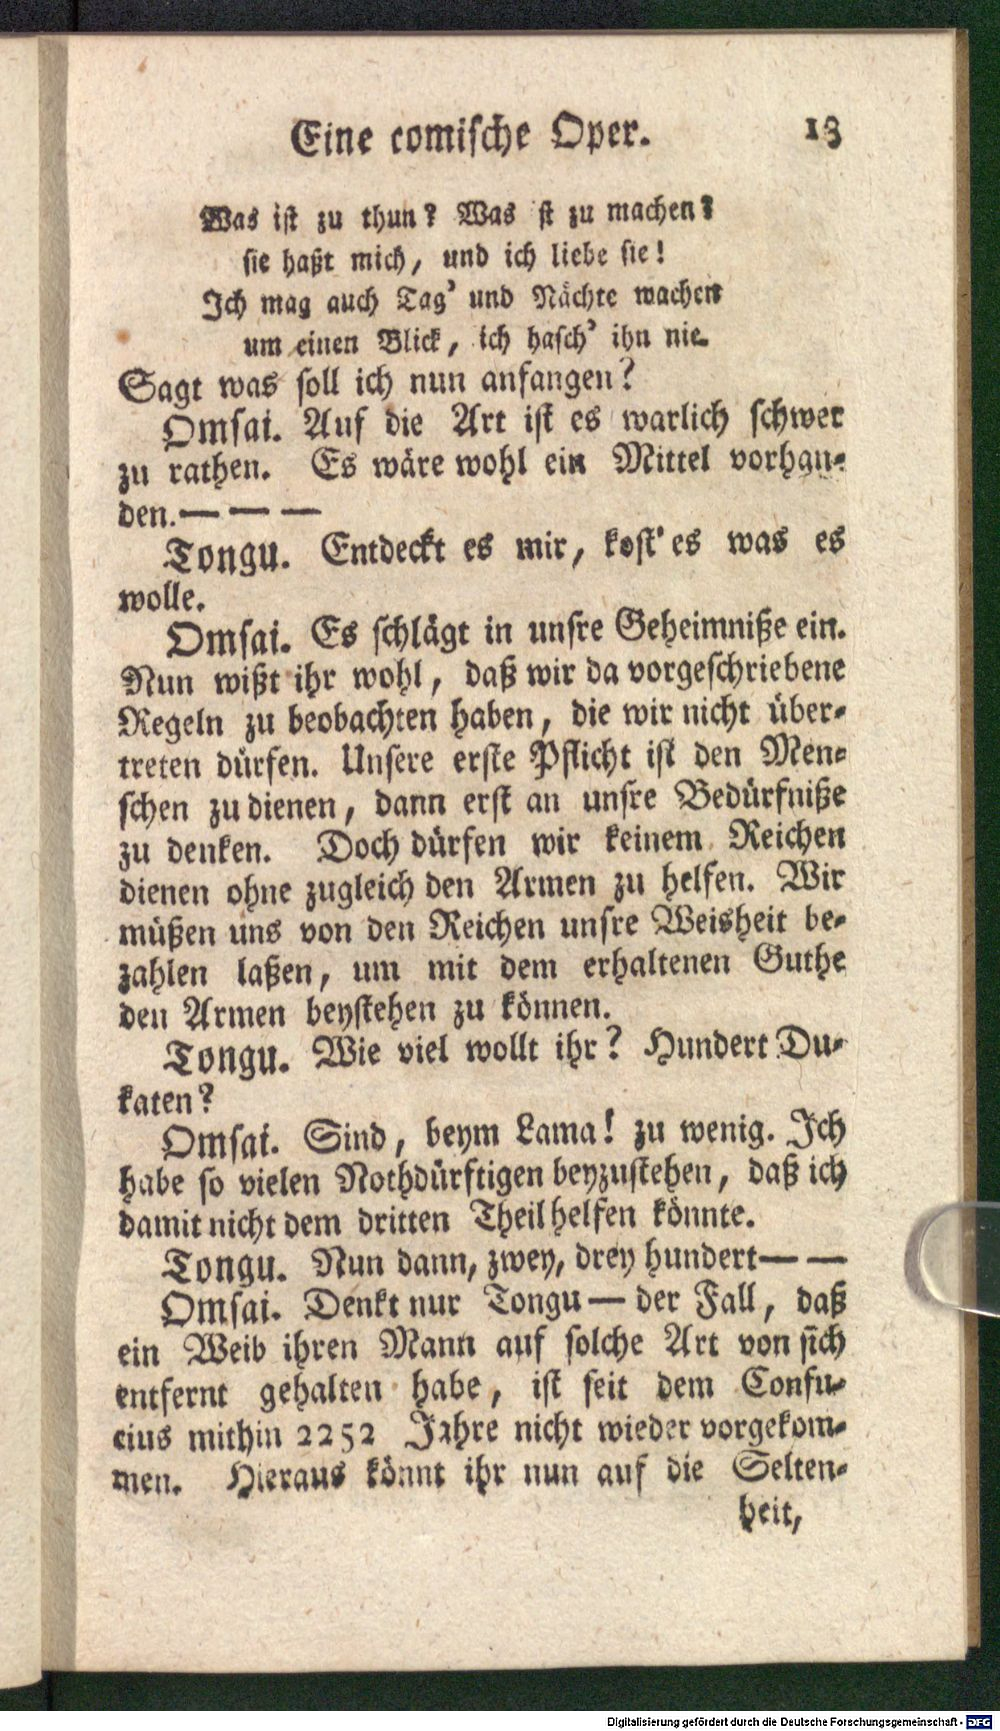 Eine comische Oper. 13
Was ist zu thun? Was st zu machen?
sie haßt mich, und ich liebe sie!
Ich mag auch Tag' und Nächte wachen
um einen Blick, ich hasch' ihn nie.
Sagt was soll ich nun anfangen?
Omsai. Auf die Art ist es warlich schwer
zu rathen. Es wäre wohl ein Mittel vorhan-
den.— — —
Tongu. Entdeckt es mir, kost' es was es
wolle.
Omsai. Es schlägt in unsre Geheimniße ein.
Nun wißt ihr wohl, daß wir da vorgeschriebene
Regeln zu beobachten haben, die wir nicht über-
treten dürfen. Unsere erste Pflicht ist den Men-
schen zu dienen, dann erst an unsre Bedürfniße
zu denken. Doch dürfen wir keinem Reichen
dienen ohne zugleich den Armen zu helfen. Wir
müßen uns von den Reichen unsre Weisheit be-
zahlen laßen, um mit dem erhaltenen Guthe
den Armen beystehen zu können.
Tongu. Wie viel wollt ihr? Hundert Du-
katen?
Omsai. Sind, beym Lama! zu wenig. Ich
habe so vielen Nothdürftigen beyzustehen, daß ich
damit nicht dem dritten Theil helfen könnte.
Tongu. Nun dann, zwey, drey hundert— —
Omsai. Denkt nur Tongu — der Fall, daß
ein Weib ihren Mann auf solche Art von sich
entfernt gehalten habe, ist seit dem Confu-
cius mithin 2252 Jahre nicht wieder vorgekom-
men. Hieraus könnt ihr nun auf die Selten-
heit,
Digitalisierung gefördert durch die Deutsche Forschungsgemeinschaft - DFG